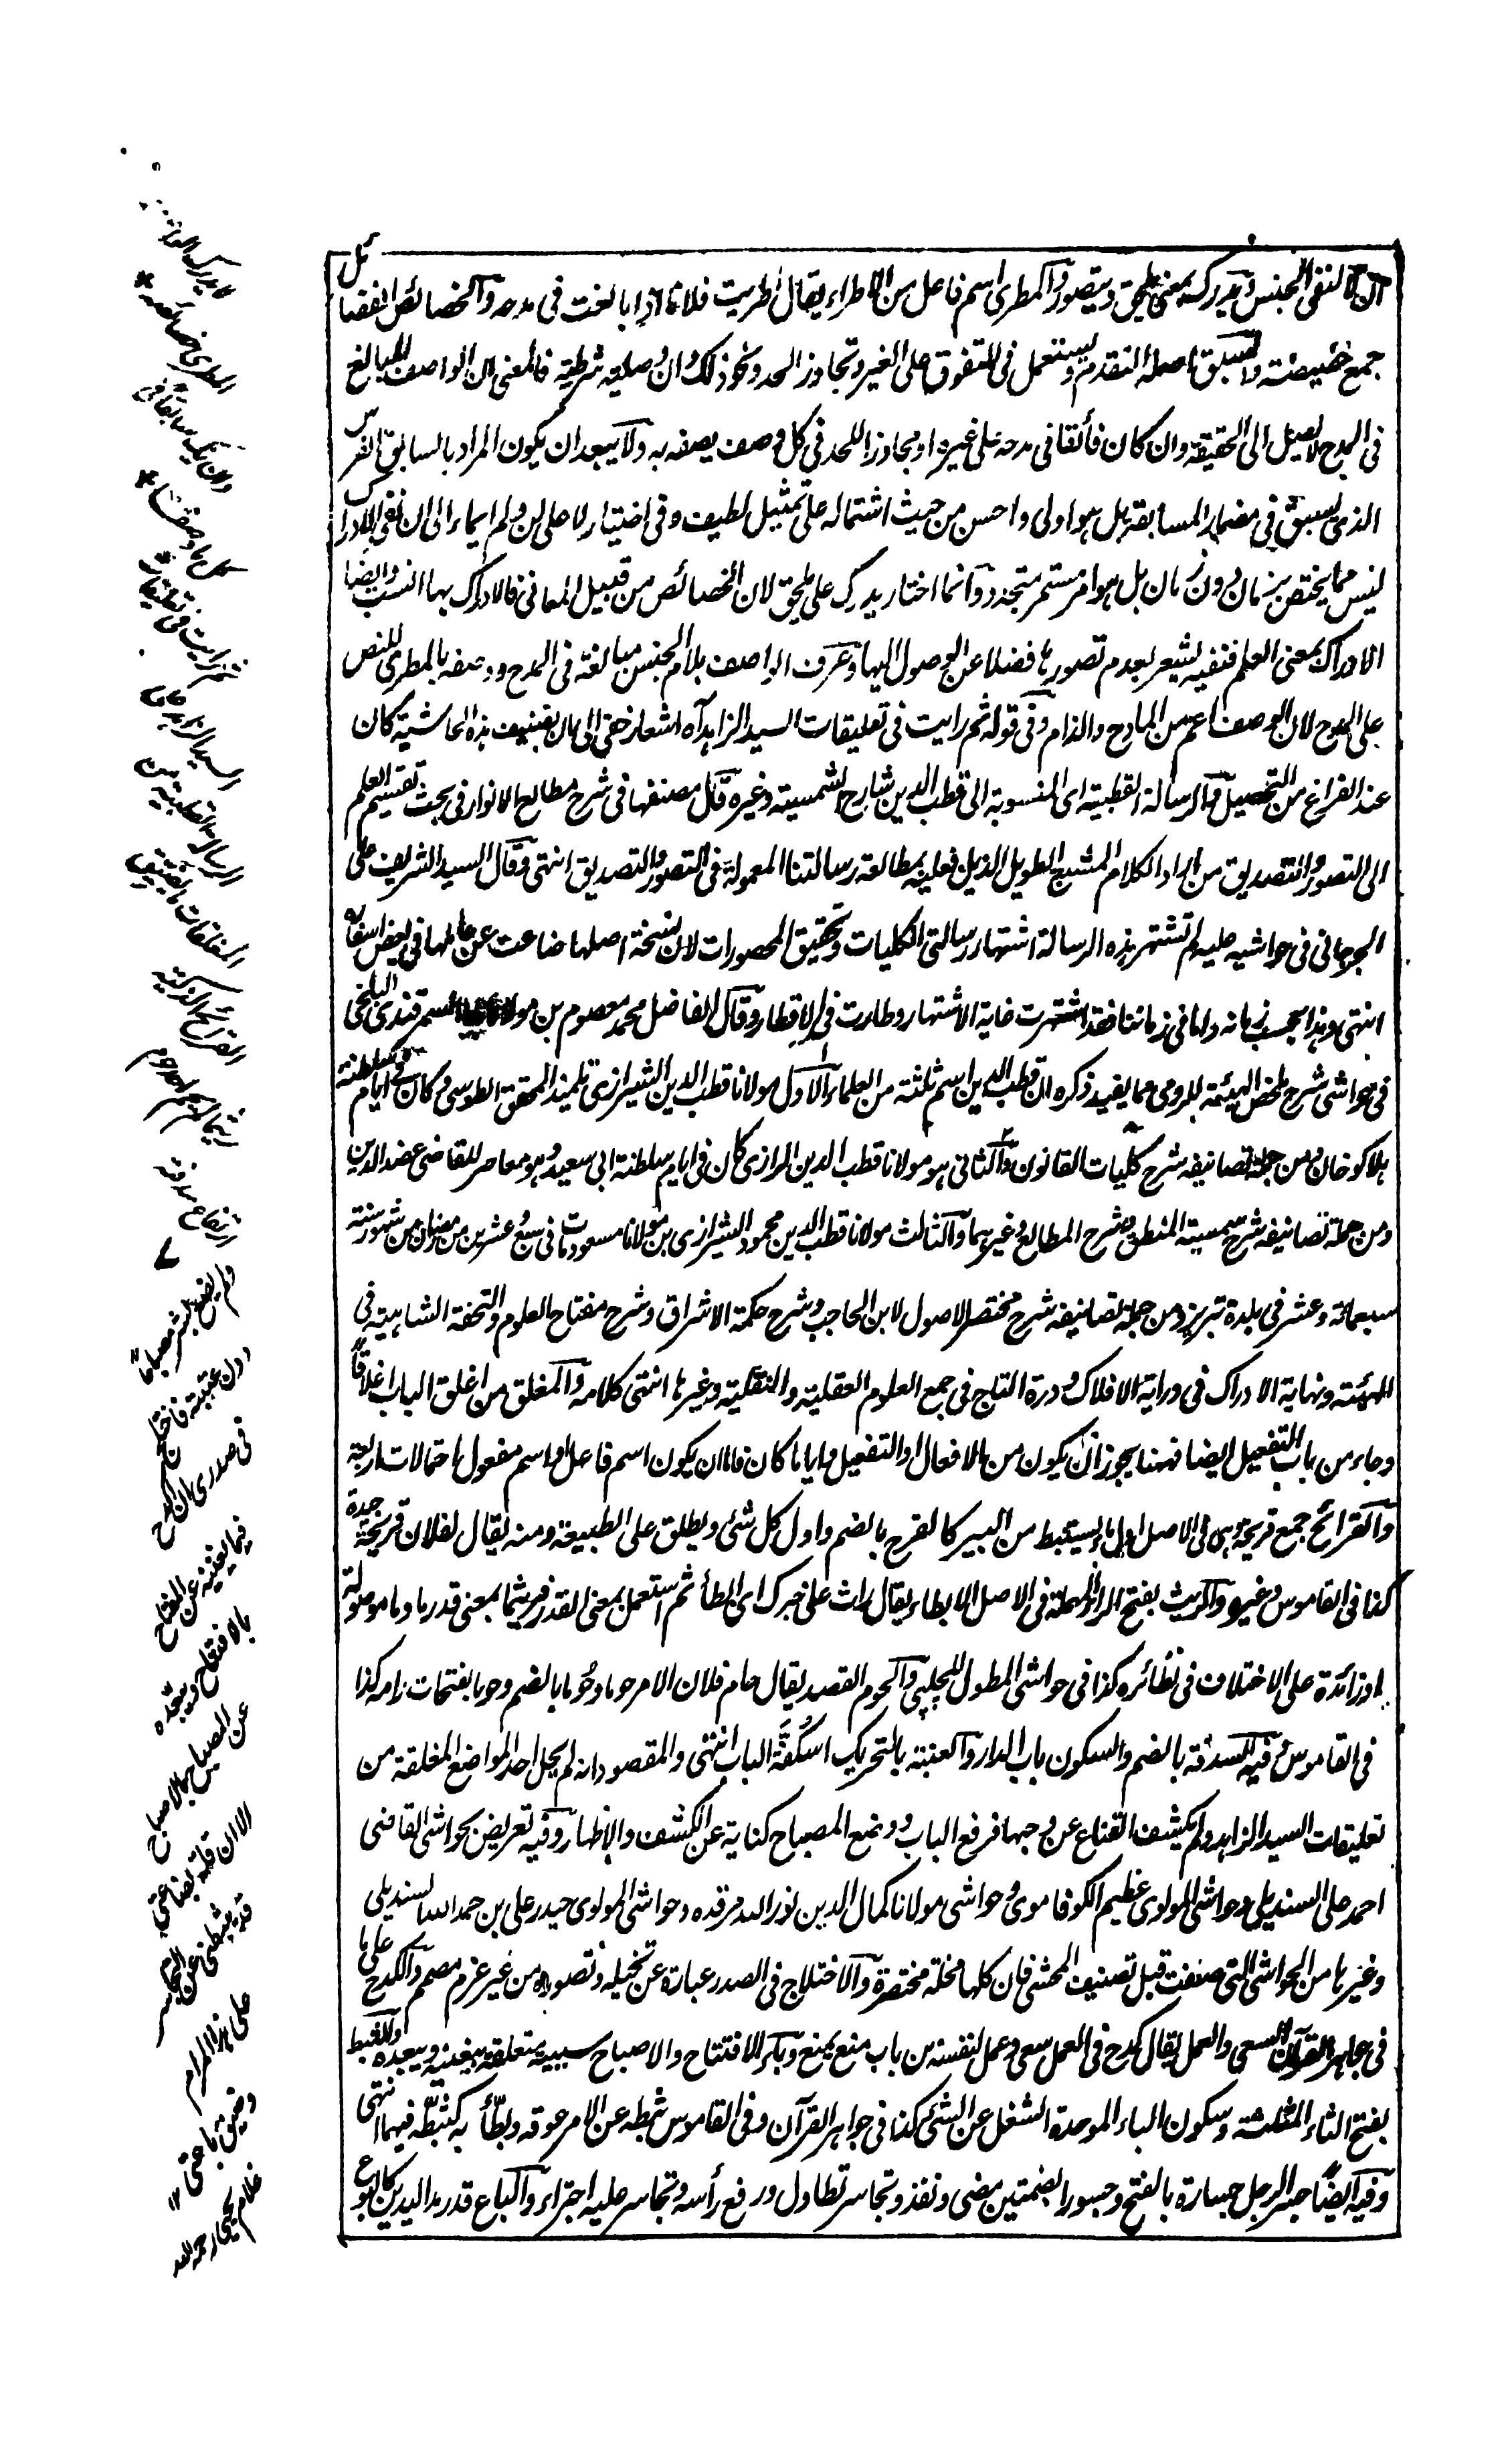 ان لا لنفى الجنس ويدركه بمعنى يلحق ويتصور والمطرى اسم فاعل من الاطراء يقال اطريت فلانا اذا بالغت فى مدحه والخصائص الفضائل
جمع خصيصة والسبق اصله التقدم ويستعمل فى التفوق على الغير وتجاوز الحد ونحو ذلك وان وصلية شرطية فالمعنى ان الواصف المبالغ
فى المدح لا يصل الى الحقيقة وان كان فائقا فى مدحه على غيره او مجاوزا للحد فى كل وصف يصفه به ولا يبعد ان يكون المراد بالسابق الفرس
الذى يسبق فى مضمار المسابقة بل هو اولى واحسن من حيث اشتماله على تمثيل لطيف وفى اختيار لا على لن ولم ايماء الى ان نفى الادراك
ليس مما يختص بزمان دون زمان بل هو امر مستمر متجدد وانما اختار يدرك على يلحق لان الخصائص من قبيل المعانى فالادراك بها انسب وايضا
الادراك بمعنى العلم فنفيه يشعر بعدم تصورها فضلا عن الوصول اليها وعرف الواصف بلام الجنس مبالغة فى المدح ووصفه بالمطرى للنص
على المدح لان الوصف اعم من المادح والذام وفى قوله ثم رايت فى تعليقات السيد الزاهد آه اشعار خفى الى ان تصنيف هذه الحاشية كان
عند الفراغ من التحصيل والرسالة القطبية اى المنسوبة الى قطب الدين شارح الشمسية وغيره قال مصنفها فى شرح مطالع الانوار فى بحث تقسيم العلم
الى التصور والتصديق من اراد الكلام المشبع الطويل الذيل فعليه بمطالعة رسالتنا المعمولة فى التصور والتصديق انتهى وقال السيد الشريف على
الجرجانى فى حواشيه عليه لم تشتهر هذه الرسالة اشتهار رسالتى الكليات وتحقيق المحصورات لان نسخة اصلها ضاعت عن حاملها فى بعض اسفاره
انتهى وهذا بحسب زمانه واما فى زماننا فقد اشتهرت غاية الاشتهار وطارت فى الاقطار وقال الفاضل محمد معصوم بن مولانا السمرقندى البلخى
فى حواشى شرح ملخص الهيئة للرومى مما يفيد ذكره ان قطب الدين اسم ثلثة من العلماء الاول مولانا قطب الدين الشيرازى تلميذ المحقق الطوسى وكان فى ايام سلطنة
هلاكو خان ومن جملة تصانيفه شرح كليات القانون والثانى هو مولانا قطب الدين الرازى كان فى ايام سلطنة ابى سعيد وهو معاصر للقاضى عضد الدين
ومن جملة تصانيفه شرح شمسية المنطق وشرح المطالع وغيرهما والثالث مولانا قطب الدين محمود الشيرازى بن مولانا مسعود مات فى سبع عشرين من رمضان من شهور سنة
سبعمائة وعشر فى بلدة تبريز ومن جملة تصانيفه شرح مختصر الاصول لابن الحاجب وشرح حكمة الاشراق وشرح مفتاح العلوم والتحفة الشاهية فى
الهيئة ونهاية الادراك فى دراية الافلاك ودرة التاج فى جمع العلوم العقلية والنقلية وغيرها انتهى كلامه والمغلق من اغلق الباب اغلاقا
وجاء من باب التفعيل ايضا فههنا يجوز ان يكون من الافعال او التفعيل وايا ما كان فاما ان يكون اسم فاعل او اسم مفعول احتمالات اربعة
والقرائح جمع قريحة هى فى الاصل اول ما يستنبط من البير كالقرح بالضم واول كل شئ ويطلق على الطبيعة ومنه يقال لفلان قريحة جيدة
كذا فى القاموس وغيره والريث بفتح الراء المهملة فى الاصل الابطاء يقال راث على خبرك اى ابطأ ثم استعمل بمعنى القدر فريثما بمعنى قدر ما وما موصولة
او زائدة على الاختلاف فى نظائره كذا فى حواشى المطول للچلپى والحوم القصد يقال حام فلان الامر حوما وحُوما بالضم وحوما بفتحات رامه كذا
فى القاموس وفيه السدة بالضم والسكون باب الدار والعتبة بالتحريك اسكُفّة الباب انتهى والمقصود انه لم يحل احد المواضع المغلقة من
تعليقات السيد الزاهد ولم يكشف القناع عن وجهها فرفع الباب ووضع المصباح كناية عن الكشف والاظهار وفيه تعريض بحواشى القاضى
احمد على السنديلى وحواشى المولوى عظيم الكوفاموى وحواشى مولانا كمال الدين نور الله مرقده وحواشى المولوى حيدر على بن حمد الله السنديلى
وغيرها من الحواشى التى صنفت قبل تصنيف المحشى فان كلها مخلة مختصرة والاختلاج فى الصدر عبارة عن تخيله وتصوره من غير عزم مصمم والكدح على ما
فى جواهر القرآن السعى والعمل يقال كدح فى العمل سعى وعمل لنفسه من باب منع يمنع وبكر الافتتاح والاصباح سببية متعلقة بيغنيه ويبعده والثبط
بفتح الثاء المثلثة وسكون الباء الموحدة الشغل عن الشئ كذا فى جواهر القرآن وفى القاموس ثبطه عن الامر عوقه وبطّأ به كثبّطه فيهما انتهى
وفيه ايضا جسر الرجل جسارة بالفتح وجسورا بضمتين مضى ونفذ وتجاسر تطاول ورفع رأسه وتجاسر عليه اجترأ والباع قدر مد اليدين كالبوع
لا يدرك الواصف
المطرى خصائصه
وان يك سابقا فى
كل ما وصفا
ثم رايت فى تعليقات
السيد الزاهد على
الرسالة القطبية من
المغلقات ما يضيق
القرائح الذكية
ريثما
ولم يضع مصباحا
دون عتبته فاختلج
فى صدرى ان اكدح
فيما يغنيه عن المفتاح
بالافتتاح ويبعده
عن المصباح بالاصباح
الا ان قلة بضاعتى
قد يثبطنى عن
على هذا المرام
وضيق باعى
غلام يحيى رحمه الله